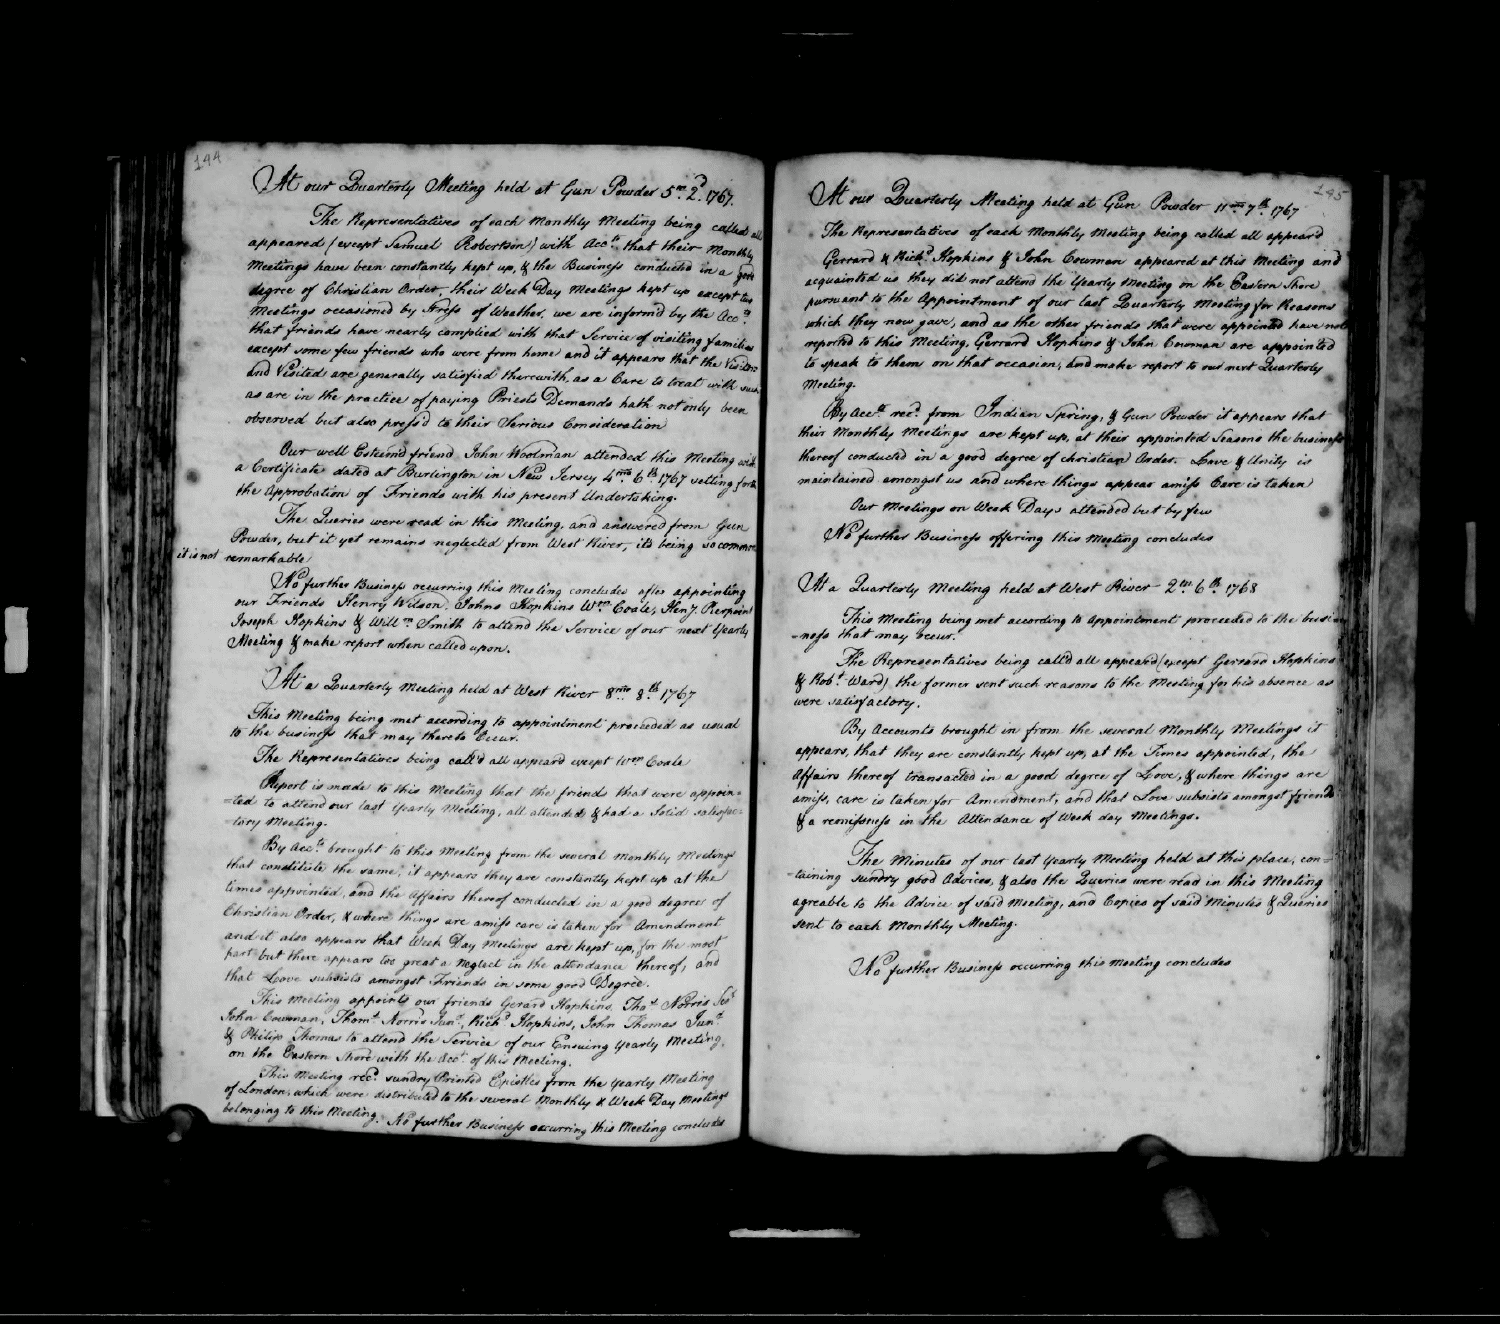 144
At our Quarterly Meeting held at Gun Powder 5m. 2d. 1767.
The Representatives of each Monthly Meeting being called all
appeared (except Samuel Robertson) with Acct. that their Monthly
Meetings have been constantly kept up, & the Business conducted in a good
degree of Christian Order, their Week Day Meetings kept up except two
Meetings occasioned by Stress of Weather, we are inform'd by the Accts.
that friends have nearly complied with that Service of visiting families
except some few friends who were from home and it appears that the Visitors
and Visited are generally satisfied therewith, as a Care to treat with such
as are in the practice of paying Priests Demands hath not only been
observed but also press'd to their Serious Consideration
Our well Esteem'd friend John Woolman attended this Meeting with
a Certificate dated at Burlington in New Jersey 4mo. 6th. 1767 setting forth
the Approbation of Friends with his present Undertaking.
The Queries were read in this Meeting, and answered from Gun
Powder, but it yet remains neglected from West River, it's being so common
it is not remarkable
No further Business occurring this Meeting concludes after appointing
our Friends Henry Wilson, Johns Hopkins Wm. Coale, Henry Pierpoint
Joseph Hopkins & Willm. Smith to attend the Service of our next Yearly
Meeting & make report when called upon.
At a Quarterly Meeting held at West River 8mo 8th. 1767
This Meeting being met according to appointment proceeded as usual
to the business that may thereto Occur.
The Representatives being call'd all appeard except Wm Coale
Report is made to this Meeting that the friends that were appoin=
=ted to attend our last Yearly Meeting, all attended & had a Solid satisfac=
=tory Meeting.
By Accts. brought to this Meeting from the several Monthly Meetings
that constitute the same, it appears they are constantly kept up at the
times appointed, and the Affairs thereof conducted in a good degree of
Christian Order, & where things are amiss care is taken for Amendment
and it also appears that Week Day Meetings are kept up, for the most
part but there appears too great a Neglect in the attendance thereof, and
that Love subsists amongst Friends in some good Degree.
This Meeting appoints our friends Gerard Hopkins, Thos. Norris Senr.
John Cowman, Thoms. Norris Junr., Richd. Hopkins, John Thomas Junr.
& Philip Thomas to attend the Service of our Ensuing Yearly Meeting,
on the Eastern Shore with the Acct. of this Meeting.
This Meeting recd. sundry Printed Epistles from the Yearly Meeting
of London, which were distributed to the several Monthly & Week Day Meetings
belonging to this Meeting. No further Business occurring this Meeting concludes
145
At our Quarterly Meeting held at Gun Powder 11mo 7th 1767
The Representatives of each Monthly Meeting being called all appeard
Gerrard & Richd. Hopkins & John Cowman appeared at this Meeting and
acquainted us they did not attend the Yearly Meeting on the Eastern Shore
pursuant to the Appointment of our last Quarterly Meeting for Reasons
which they now gave, and as the other friends that were appointed have not
reported to this Meeting, Gerrard Hopkins & John Cowman are appointed
to speak to them on that occasion, and make report to our next Quarterly
Meeting.
By Accts. recd. from Indian Spring, & Gun Powder it appears that
their Monthly Meetings are kept up, at their appointed Seasons the business
thereof conducted in a good degree of christian Order. Love & Unity is
maintained amongst us and where things appear amiss Care is taken
Our Meetings on Week Days attended but by few
No further Business offering this Meeting concludes
At a Quarterly Meeting held at West River 2m. 6th. 1768
This Meeting being met according to Appointment proceeded to the busi=
=ness that may Occur.
The Representatives being call'd all appeared (except Gerrard Hopkins
& Robt. Ward) the former sent such reasons to the Meeting for his absence as
were satisfactory.
By Accounts brought in from the several Monthly Meetings it
appears, that they are constantly kept up, at the Times appointed, the
Affairs thereof transacted in a good degree of Love, & where things are
amiss, care is taken for Amendment, and that Love subsists amongst friends
& a remissness in the Attendance of Week day Meetings.
The Minutes of our last Yearly Meeting held at this place, con=
=taining sundry good Advices, & also the Queries were read in this Meeting
agreable to the Advice of said Meeting, and Copies of said Minutes & Queries
sent to each Monthly Meeting.
No further Business occurring this Meeting concludes